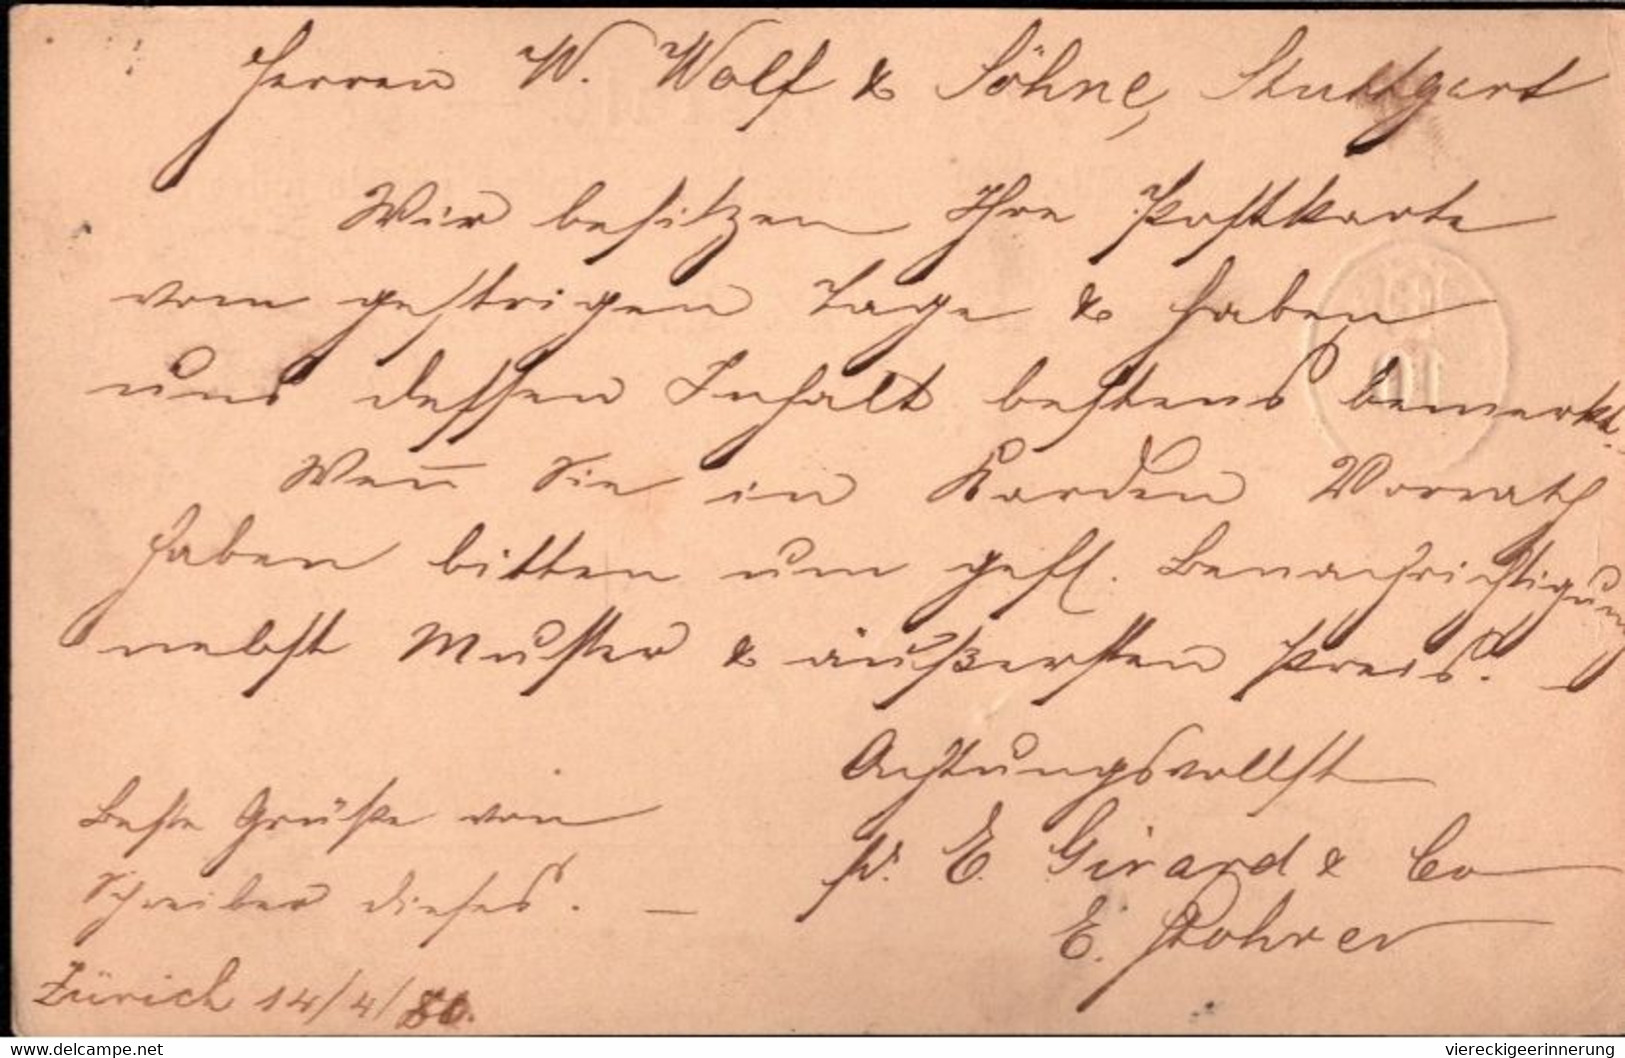 Herren W. Wolf & Söhne, Stuttgart
Wir besitzen Ihre Postkarte
vom gestrigen Tage & haben
uns dessen Inhalt bestens bemerkt.
Wenn Sie in Karden Vorrath
haben bitten um gefl. Benachrichtigung
nebst Muster & äußersten Preis. —
Achtungsvollst
pr. E. Girard & Co
E. Rohrer
Beste Grüße von
Schreiber dieses. —
Zürich 14/4/80.
delcampe.net
viereckigeerinnerung